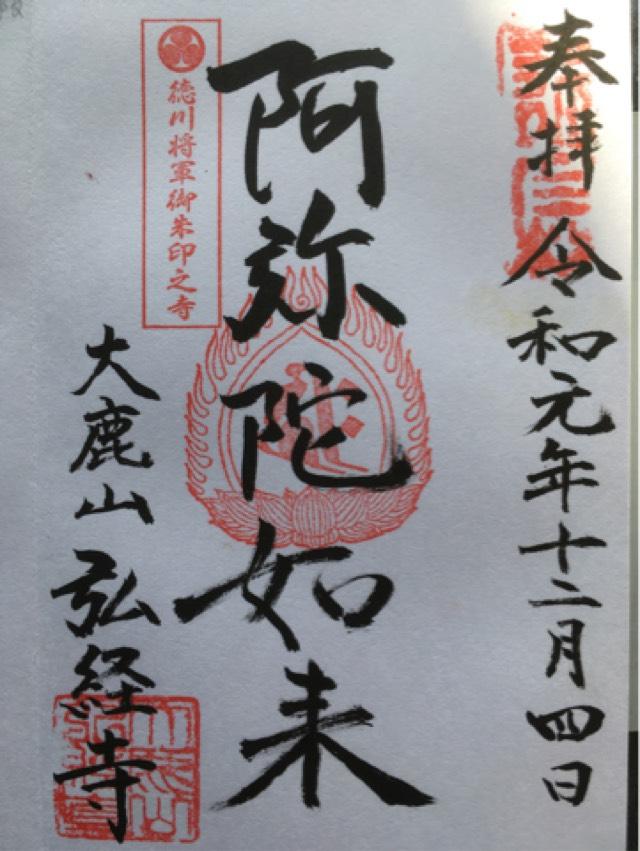 奉拝 令和元年十二月四日
阿弥陀如来
徳川将軍御朱印之寺
大鹿山 弘経寺